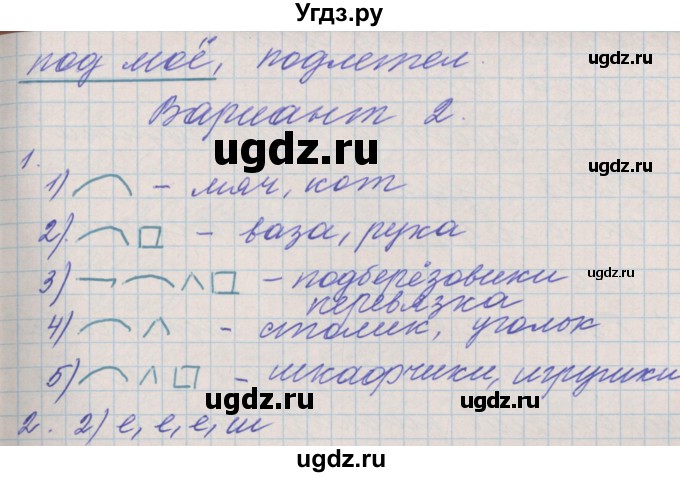 Угдз.ру
под моё, подлетел.
Вариант 2.
1.
1) – мяч, кот
2) – ваза, рука
3) – подберёзовики
перевязка
4) – столик, уголок
5) – шкафчики, игрушки
2. 2) е, е, е, ш
ugdz.ru
ugdz.ru
ugdz.ru
ugdz.ru
ugdz.ru
ugdz.ru
ugdz.ru
ugdz.ru
ugdz.ru